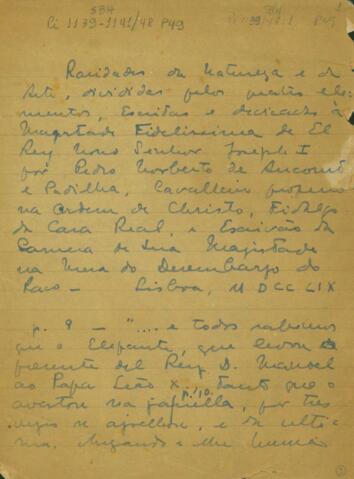 534
Ci 1139-1141/48 P49
Raridades da Natureza e da
Arte, divididas pelos quatro ele-
mentos, Escritas e dedicadas à
Magestade Fidelissima de El
Rey Nosso Senhor Joseph I
por Pedro Norberto de Aucourt
e Padilha, Cavalleiro professo
na Ordem de Christo, Fidalgo
da Casa Real, e Escrivão da
Camera de Sua Magestade
na Mesa do Desembargo do
Paço - Lisboa, M DCC LIX
p. 9 - ".... e todos sabemos
que o Elefante, que levou de
presente del Rey D. Manoel
ao Papa Leão X, p. 10. tanto que o
avistou na janella, por tres
vezes se ajoelhou, e de ulti-
ma, chegando a